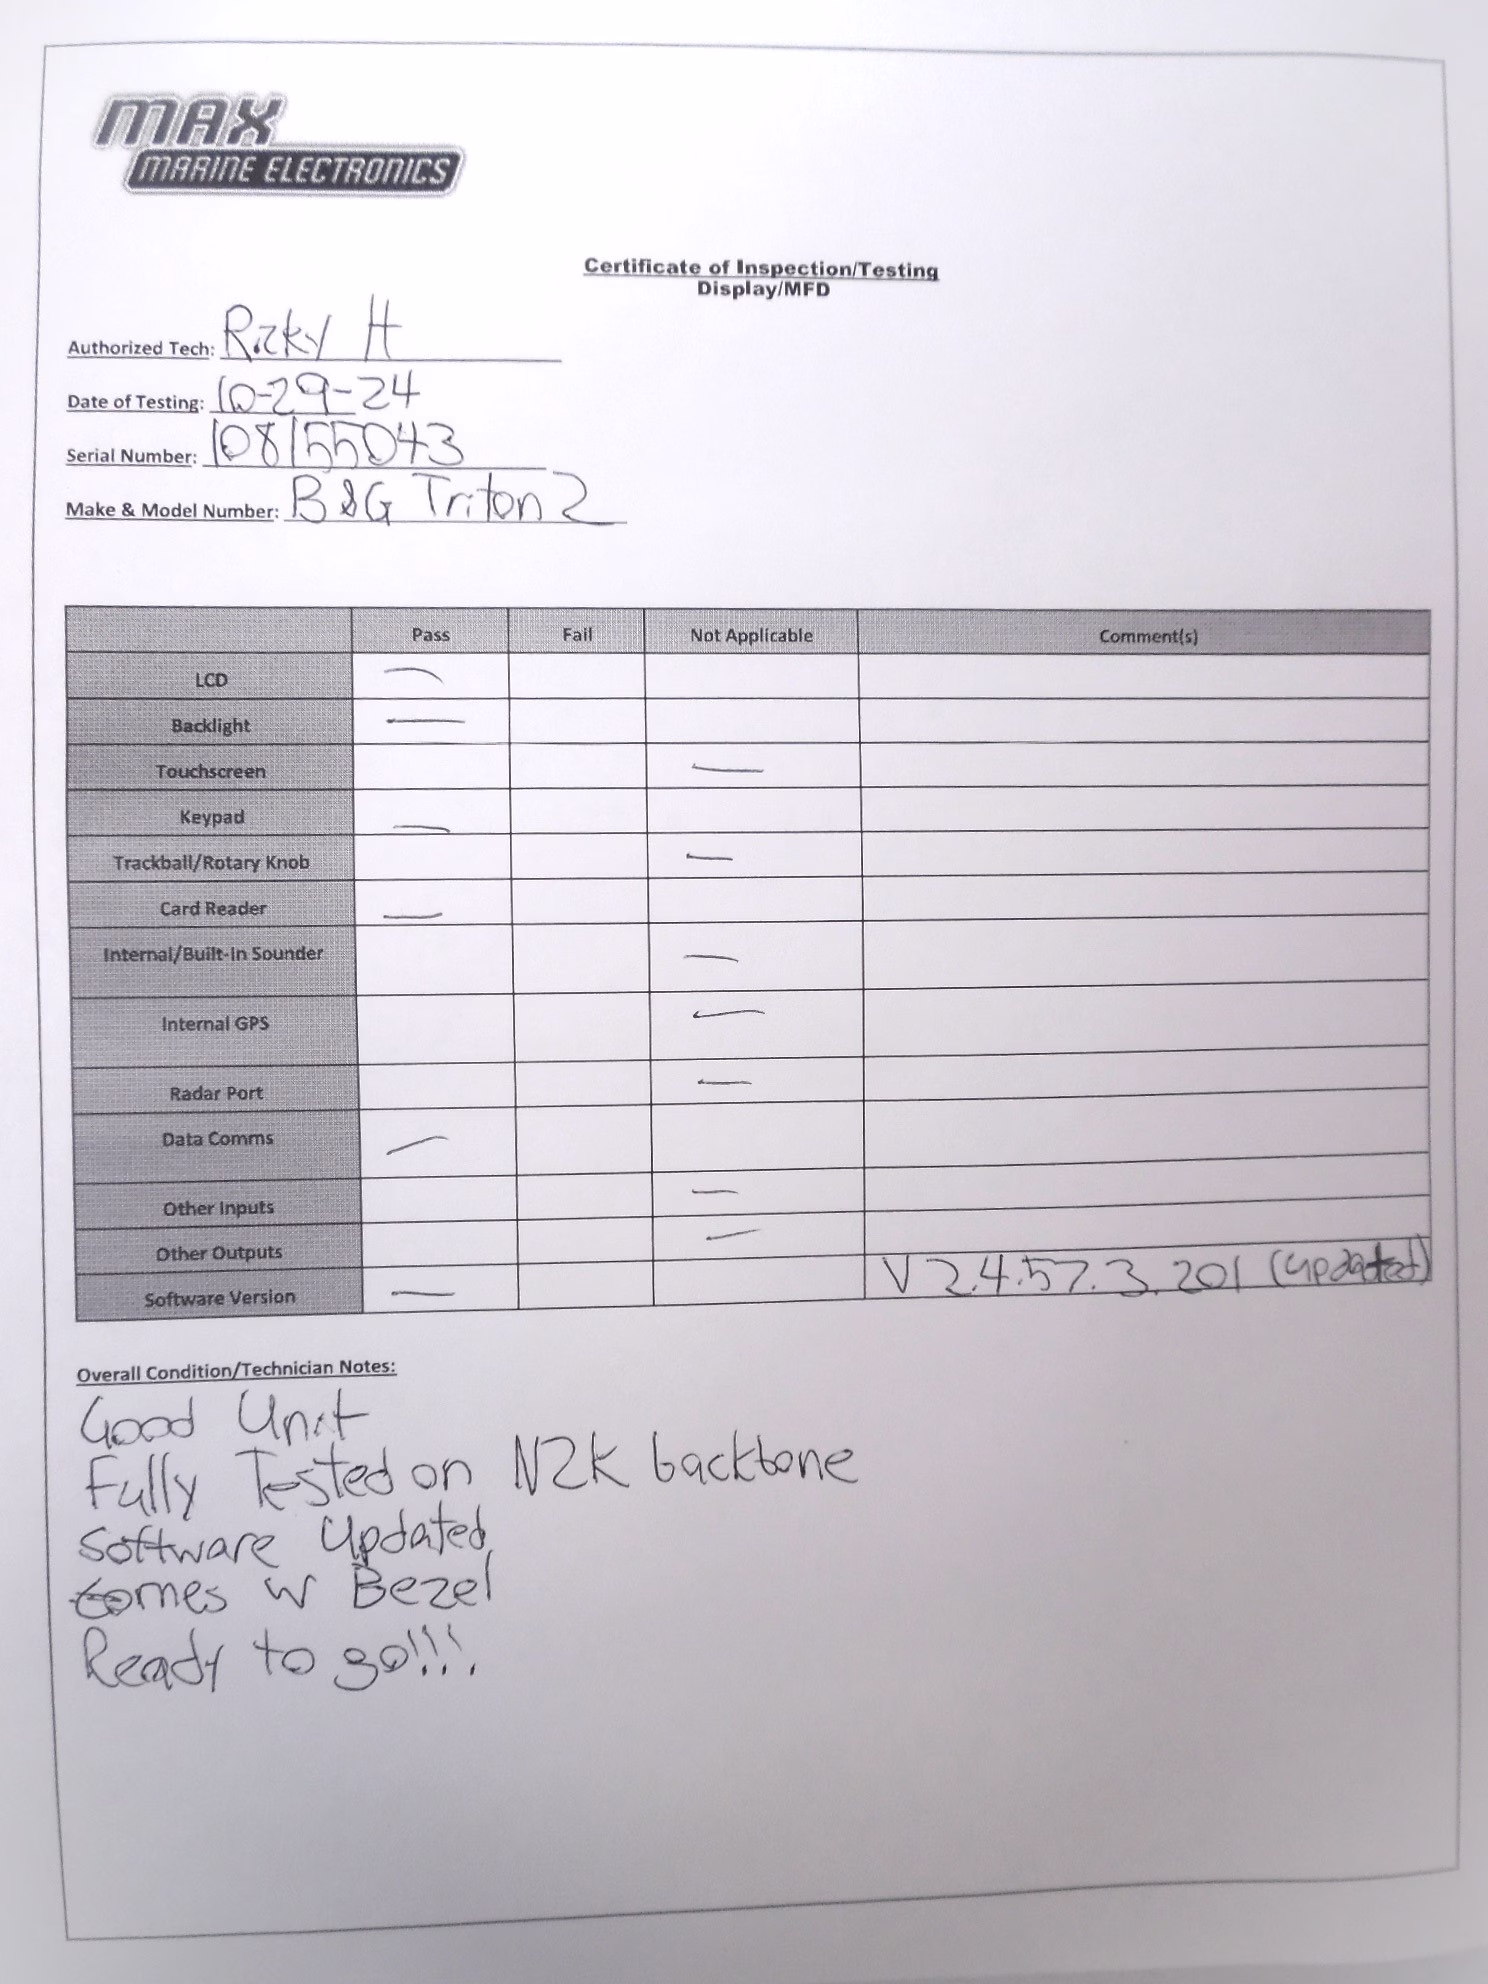 MAX
MARINE ELECTRONICS
Certificate of Inspection/Testing
Display/MFD
Authorized Tech: Ricky H
Date of Testing: 10-29-24
Serial Number: 108155043
Make & Model Number: B&G Triton 2
Pass Fail Not Applicable Comment(s)
LCD —
Backlight —
Touchscreen —
Keypad —
Trackball/Rotary Knob —
Card Reader —
Internal/Built-In Sounder —
Internal GPS —
Radar Port —
Data Comms —
Other Inputs —
Other Outputs —
Software Version — V 2.4.57.3.201 (updated)
Overall Condition/Technician Notes:
Good Unit
Fully Tested on N2K backbone
Software Updated
comes w Bezel
Ready to go!!!